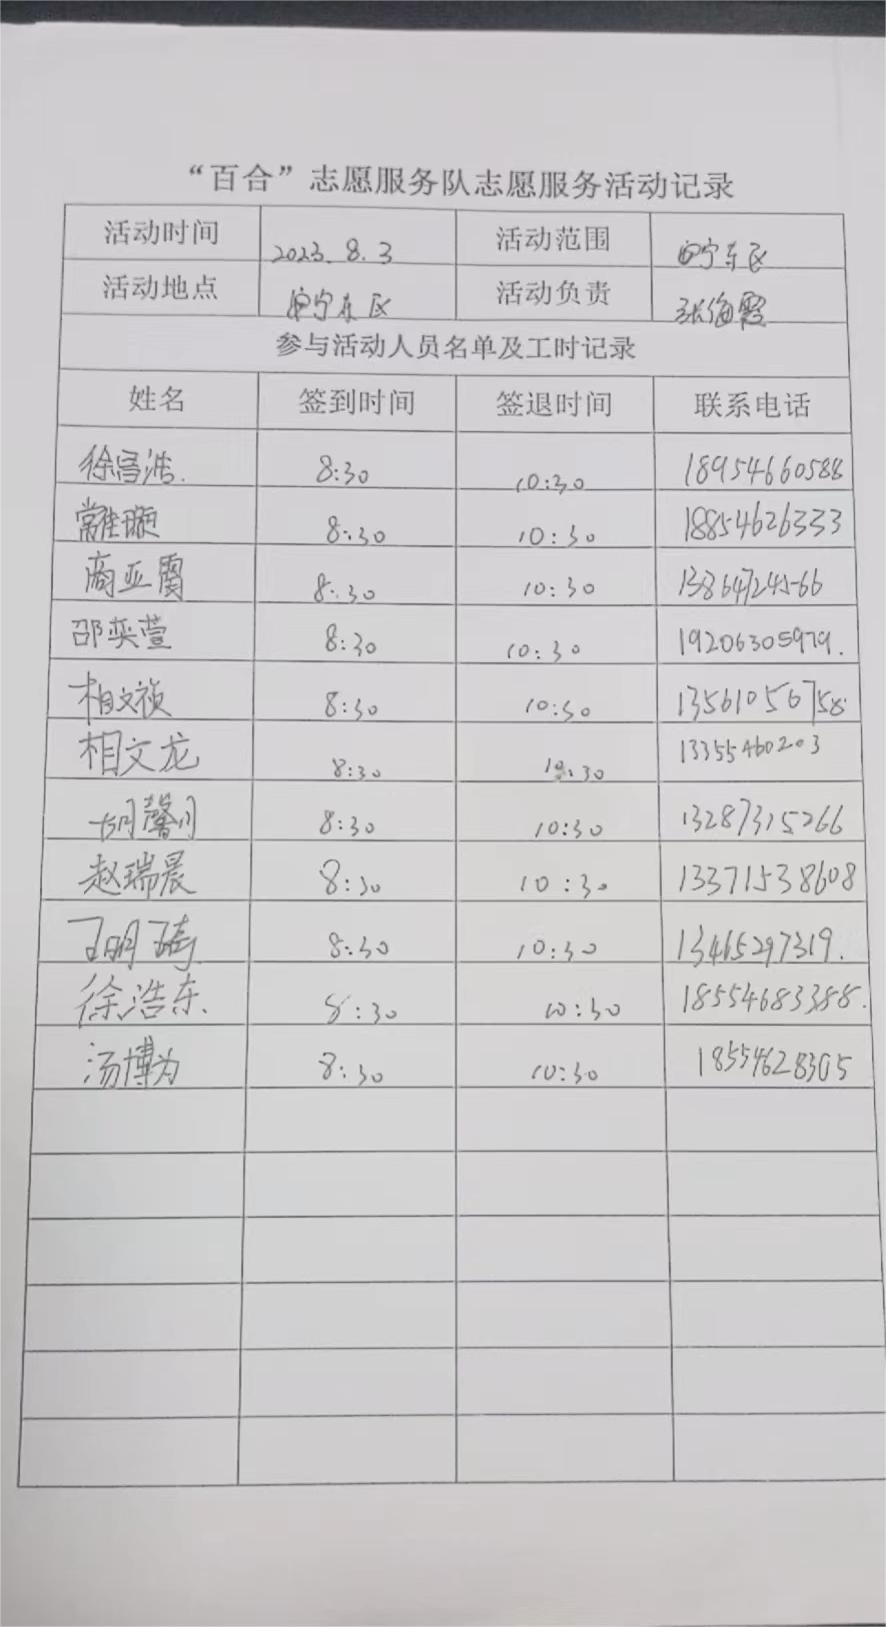 “百合”志愿服务队志愿服务活动记录
活动时间 2023.8.3 活动范围 安宁东区
活动地点 安宁东区 活动负责 张海霞
参与活动人员名单及工时记录
姓名 签到时间 签退时间 联系电话
徐富浩. 8:30 10:30 18954660588
常璇 8:30 10:30 18854626333
商亚霄 8:30 10:30 13864724566
邵奕萱 8:30 10:30 19206305979.
相文祯 8:30 10:30 13561056758
相文龙 8:30 10:30 13355460203
胡馨月 8:30 10:30 13287315266
赵瑞晨 8:30 10:30 13371538608
王明琦 8:30 10:30 13465297319.
徐浩东. 8:30 10:30 18554683388.
汤博为 8:30 10:30 18554628305